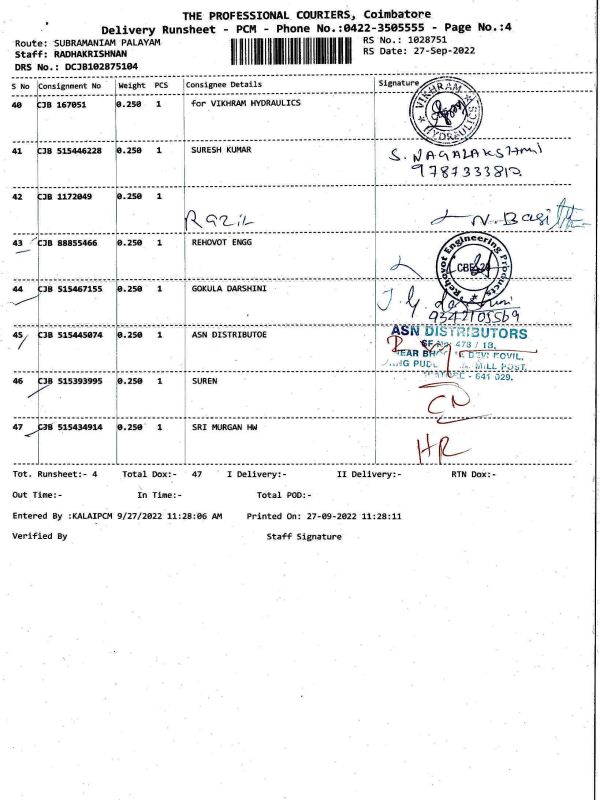 THE PROFESSIONAL COURIERS, Coimbatore
Delivery Runsheet - PCM - Phone No.:0422-3505555 - Page No.:4
Route: SUBRAMANIAM PALAYAM
RS No.: 1028751
Staff: RADHAKRISHNAN
RS Date: 27-Sep-2022
DRS No.: DCJB102875104
S No Consignment No Weight PCS Consignee Details Signature
40 CJB 167051 0.250 1 for VIKHRAM HYDRAULICS
VIKHRAM HYDRAULICS
41 CJB 515446228 0.250 1 SURESH KUMAR
S. NAGALAKSHMI
42 CJB 1172049 0.250 1
Razil
N. Basi
43 CJB 88855466 0.250 1 REHOVOT ENGG
Rehovot Engineering Products
44 CJB 515467155 0.250 1 GOKULA DARSHINI
9342105569
45 CJB 515445074 0.250 1 ASN DISTRIBUTOE
ASN DISTRIBUTORS
SF.No. 478 / 1B,
MILL POST,
- 641 029.
46 CJB 515393995 0.250 1 SUREN
CN
47 CJB 515434914 0.250 1 SRI MURGAN HW
HR
Tot. Runsheet:- 4 Total Dox:- 47 I Delivery:- II Delivery:- RTN Dox:-
Out Time:- In Time:- Total POD:-
Entered By :KALAIPCM 9/27/2022 11:28:06 AM Printed On: 27-09-2022 11:28:11
Verified By Staff Signature